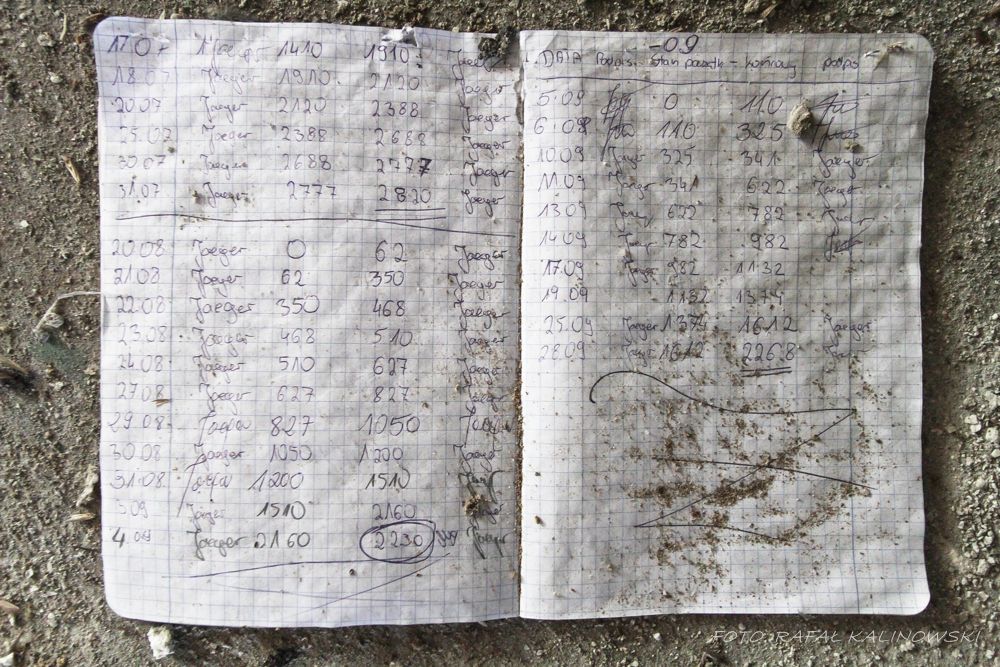 17.07 Jaeger 1410 1910 Jaeger
18.07 Jaeger 1910 2120 Jaeger
20.07 Jaeger 2120 2388 Jaeger
25.07 Jaeger 2388 2688 Jaeger
30.07 Jaeger 2688 2777 Jaeger
31.07 Jaeger 2777 2820 Jaeger
20.08 Jaeger 0 62 Jaeger
21.08 Jaeger 62 350 Jaeger
22.08 Jaeger 350 468 Jaeger
23.08 Jaeger 468 510 Jaeger
24.08 Jaeger 510 627 Jaeger
27.08 Jaeger 627 827 Jaeger
29.08 827 1050
30.08 Jaeger 1050 1200 Jaeger
31.08 1200 1510
3.09 Jaeger 1510 2160 Jaeger
4.09 Jaeger 2160 2230 Jaeger
-09
DATA Podpis stan początk - końcowy podpis
5.09 0 110
6.09 110 325
10.09 Jaeger 325 341 Jaeger
11.09 Jaeger 341 622 Jaeger
13.09 Jaeger 622 782
14.09 782 982
17.09 Jaeger 982 1132
19.09 1132 1374
25.09 Jaeger 1374 1612 Jaeger
28.09 Jaeger 1612 2268
FOTO: RAFAŁ KALINOWSKI